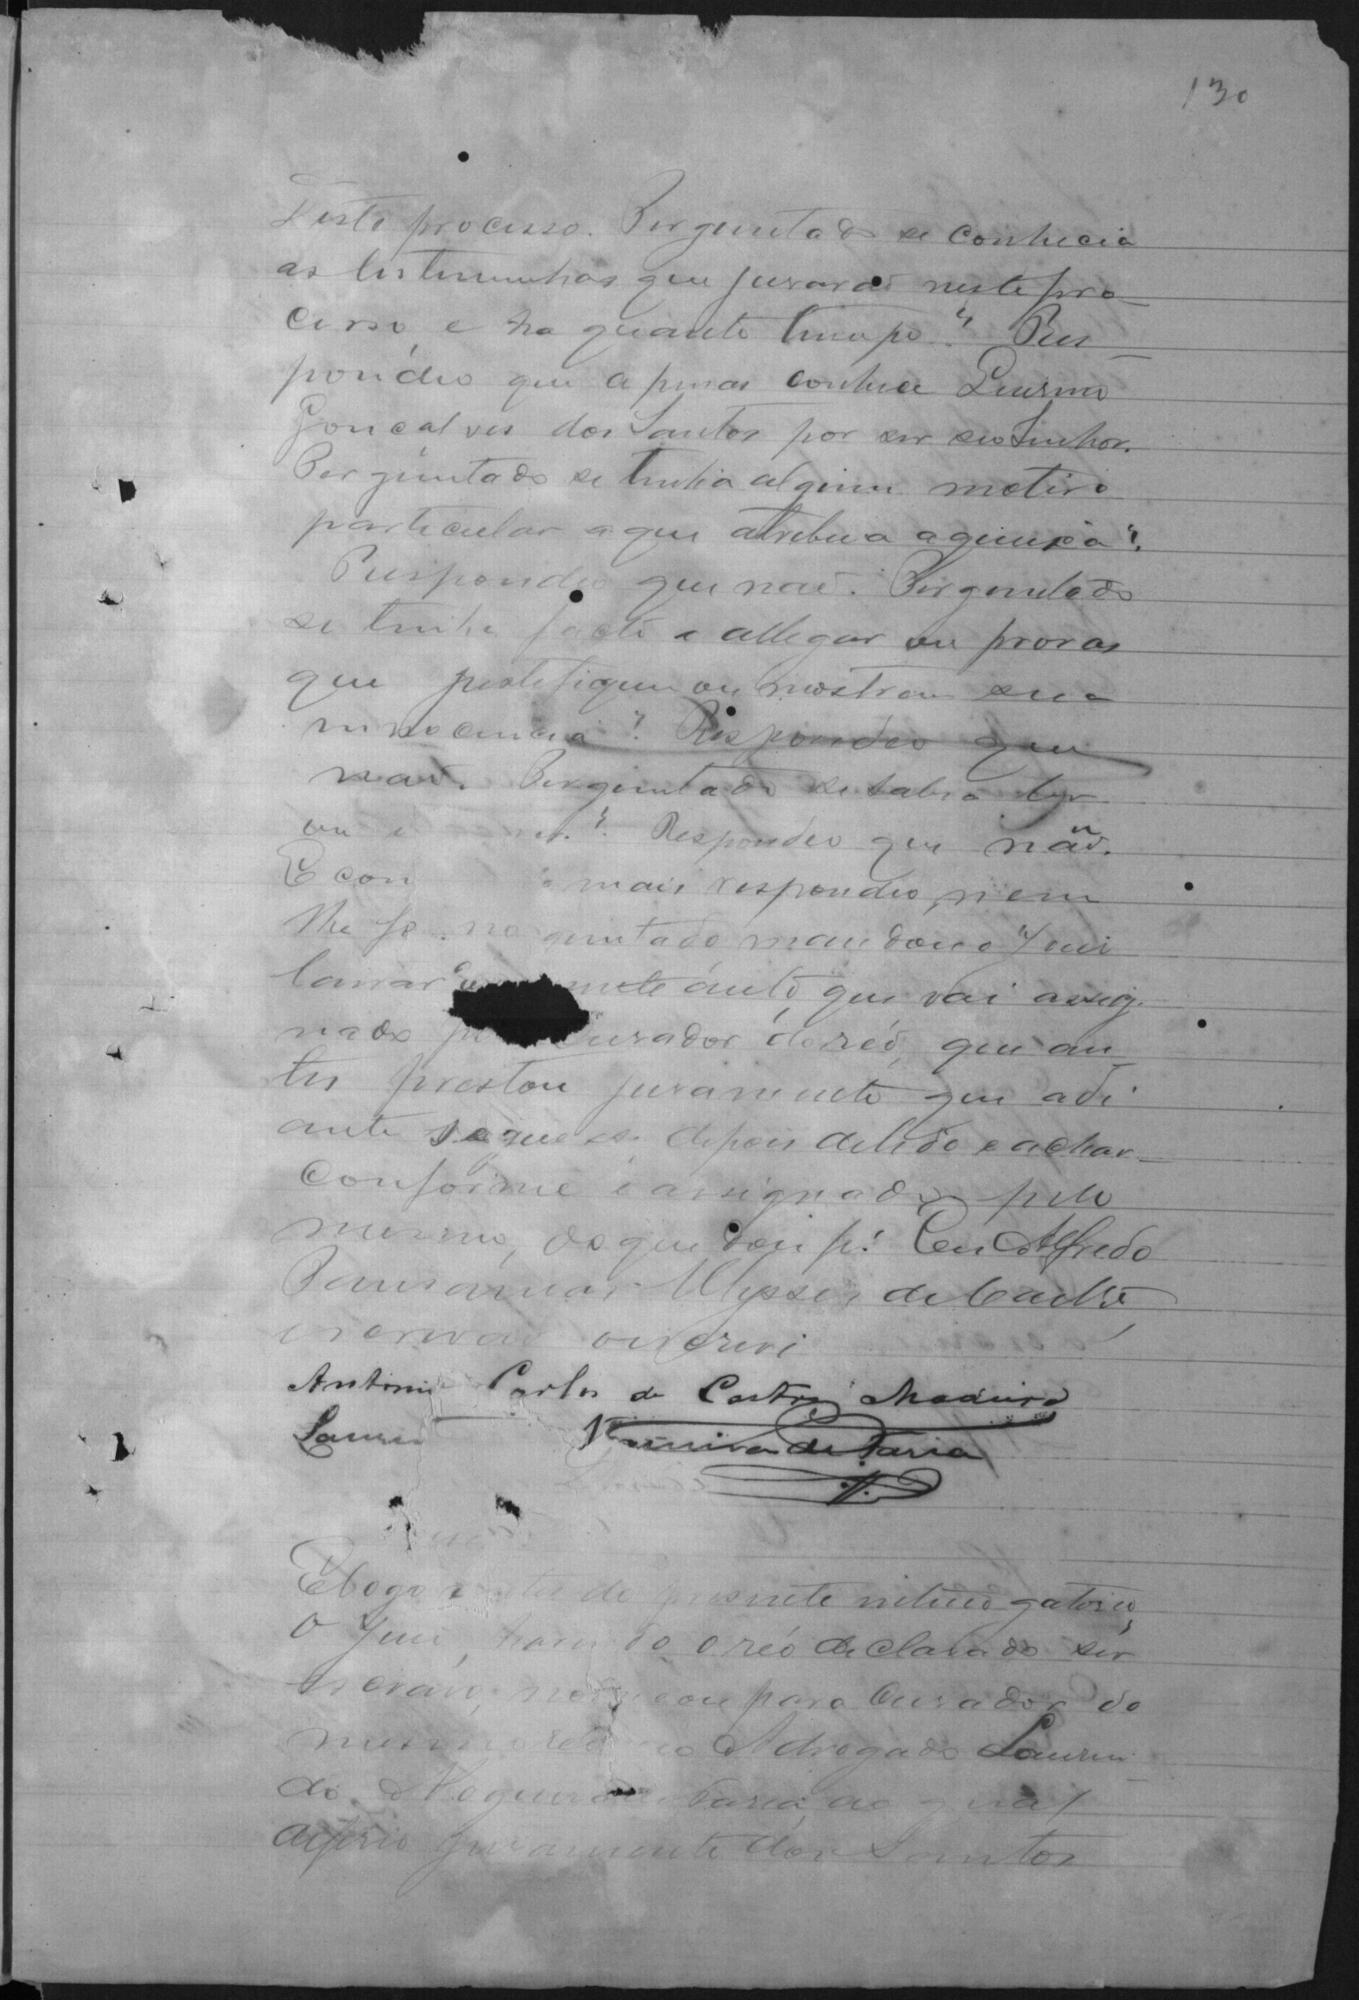 130
Deste processo. Perguntado se conhecia
as testemunhas que jurarão neste pro-
cesso, e ha quanto tempo? Res-
pondeo que apenas conhece
Gonçalves dos Santos por ser seo Senhor.
Perguntado se tinha algum motivo
particular a que atribua a queixa?
Respondeo que não. Perguntado
se tinha facto a allegar ou provas
que justifiquem ou mostrem sua
innocencia? Respondeo que
não. Perguntado se sabia ler
ou? Respondeo que não.
E como mais respondeo, nem
lhe foi perguntado mandou o Juiz
lavrar o presente auto, que vai assig-
nado pelo Curador do réo, que an-
tes prestou juramento que adi-
ante segue-se, depois de lido e achar
conforme e assignado pelo
mesmo, do que dou fé. Eu Alfredo
Ulysses de Castro,
escrivão o escrevi
Antonio Carlos de Castro Madeira
Nogueira de Faria
E logo antes do presente interrogatorio,
o Juiz, havendo o réo declarado ser
escravo, nomeou para Curador do
mesmo réo ao Advogado Laurin-
do Nogueira de Faria, ao qual
deferio juramento dos Santos